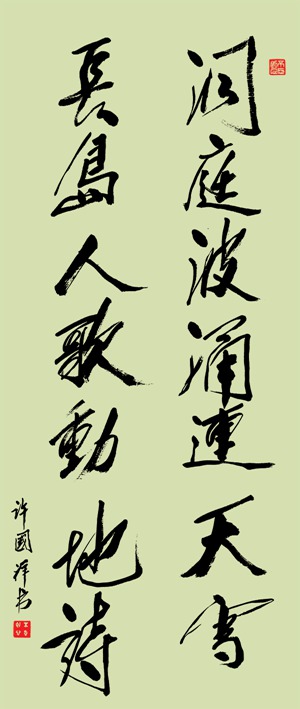 洞庭波涌連天雪
長島人歌動地詩
許國祥书